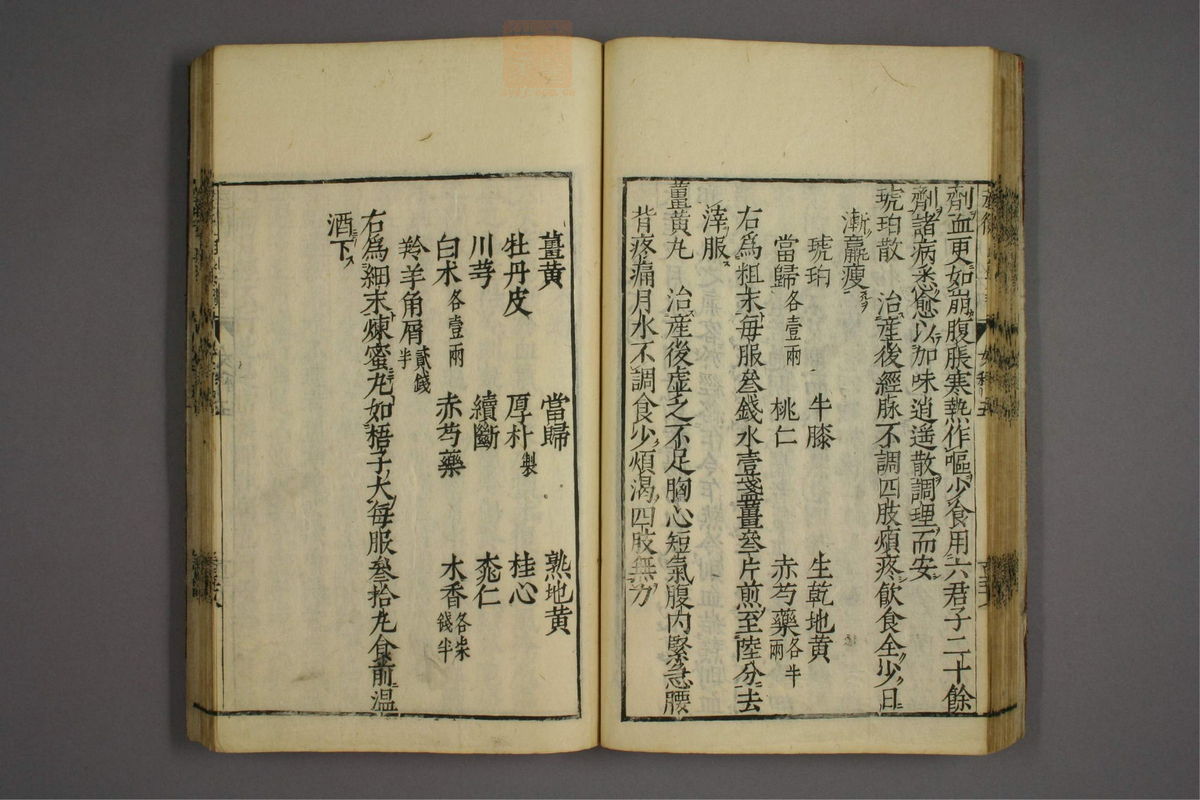 劑血更如崩腹脹寒熱作嘔少食用六君子二十餘
劑諸病悉愈以加味逍遥散調理而安
琥珀散 治産後經脉不調四肢煩疼飲食全少日
漸羸瘦
琥珀 牛膝 生乾地黄
當歸各壹兩 桃仁 赤芍藥各半兩
右爲粗末每服叄錢水壹盞薑叄片煎至陸分去
滓服
薑黄丸 治産後虚乏不足胸心短氣腹内緊急腰
背疼痛月水不調食少煩渴四肢無力
薑黄 當歸 熟地黄
牡丹皮 厚朴製 桂心
川芎 續斷 桃仁
白术各壹兩 赤芍藥 木香各柒錢半
羚羊角屑貳錢半
右爲細末煉蜜丸如梧子大每服叄拾丸食前温
酒下